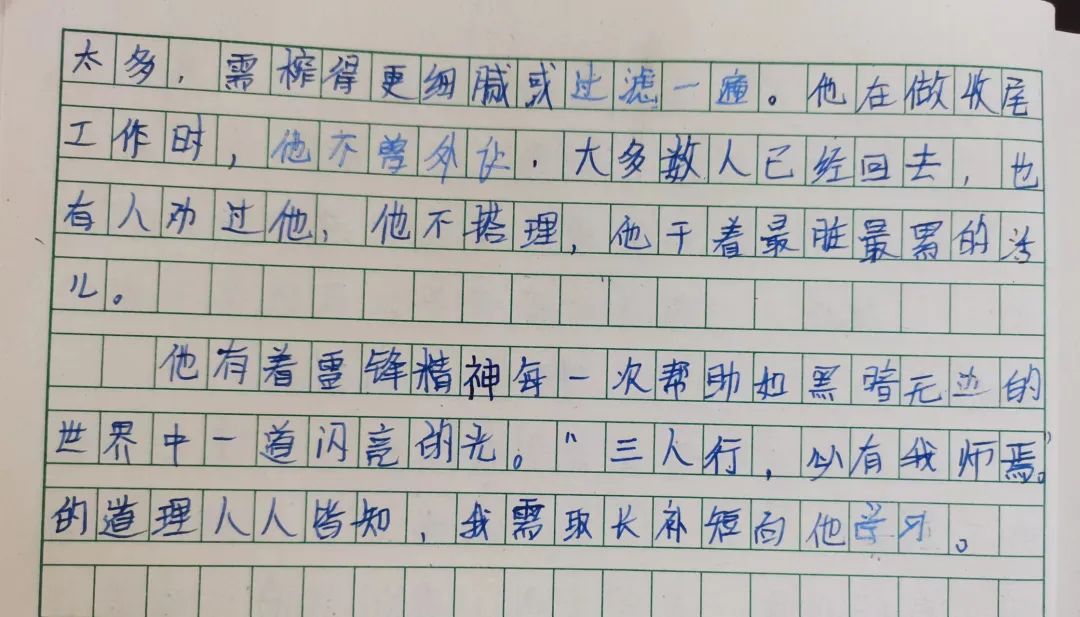 太多，需榨得更细腻或过滤一遍。他在做收尾
工作时，他不曾外让．大多数人已经回去，也
有人劝过他，他不搭理，他干着最脏最累的活
儿。
他有着雷锋精神每一次帮助如黑暗无边的
世界中一道闪亮的光。“三人行，必有我师焉。”
的道理人人皆知，我需取长补短向他学习。